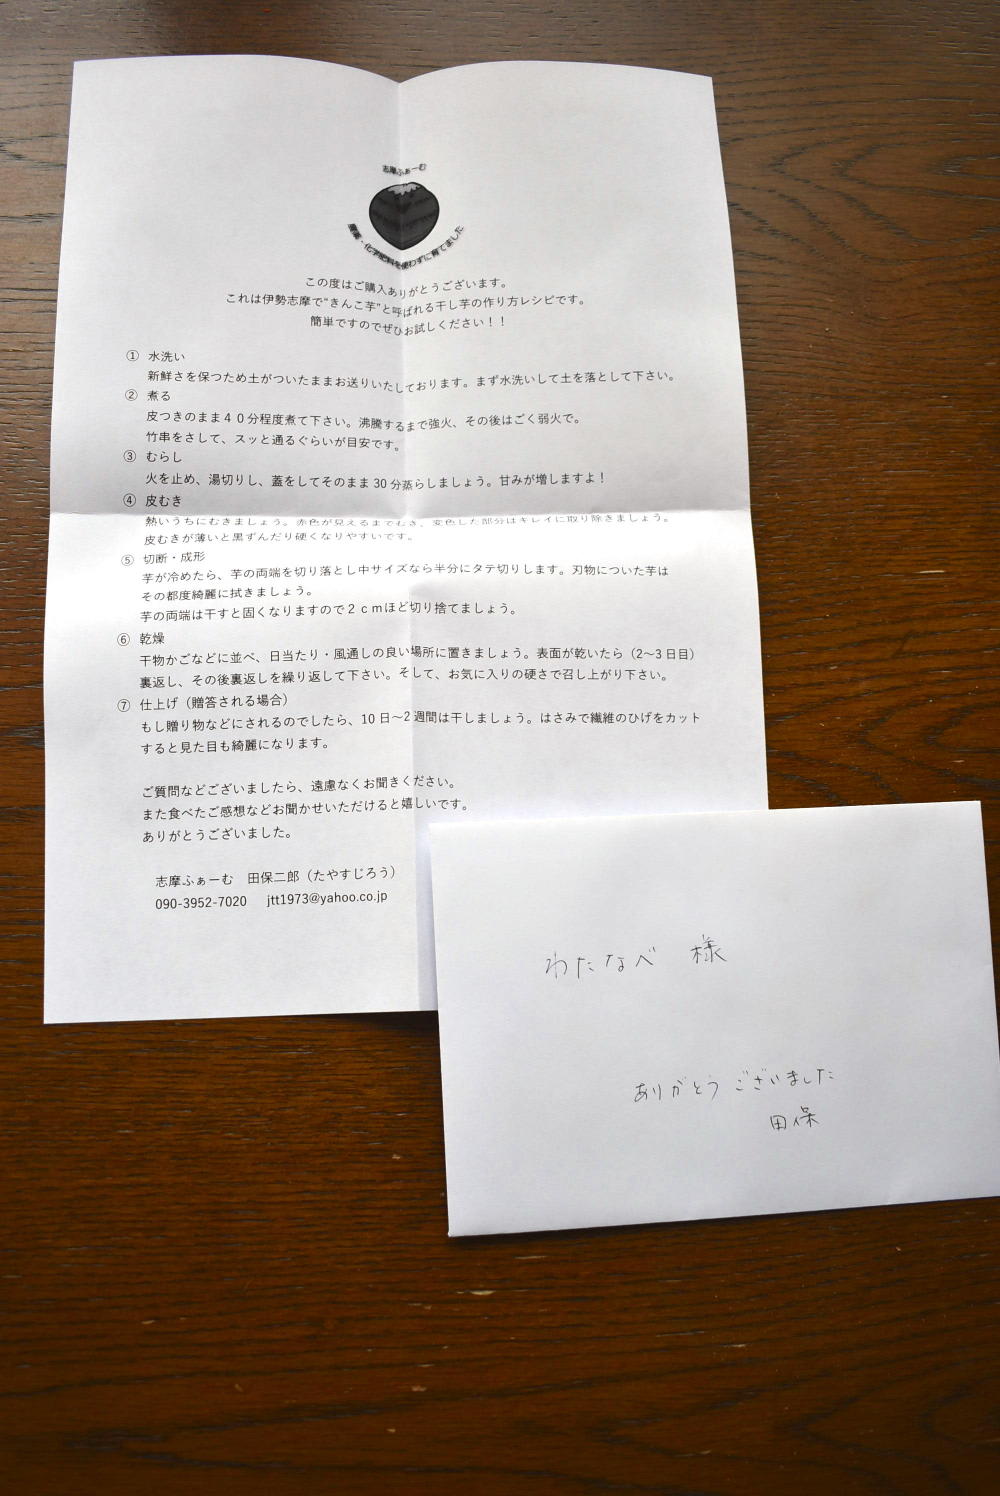 志摩ふぁーむ
農薬・化学肥料を使わずに育てました
この度はご購入ありがとうございます。
これは伊勢志摩で“きんこ芋”と呼ばれる干し芋の作り方レシピです。
簡単ですのでぜひお試しください！！
① 水洗い
新鮮さを保つため土がついたままお送りいたしております。まず水洗いして土を落として下さい。
② 煮る
皮つきのまま４０分程度煮て下さい。沸騰するまで強火、その後はごく弱火で。
竹串をさして、スッと通るぐらいが目安です。
③ むらし
火を止め、湯切りし、蓋をしてそのまま 30 分蒸らしましょう。甘みが増しますよ！
④ 皮むき
熱いうちにむきましょう。赤色が見えるまでむき、変色した部分はキレイに取り除きましょう。
皮むきが薄いと黒ずんだり硬くなりやすいです。
⑤ 切断・成形
芋が冷めたら、芋の両端を切り落とし中サイズなら半分にタテ切りします。刃物についた芋は
その都度綺麗に拭きましょう。
芋の両端は干すと固くなりますので２ｃｍほど切り捨てましょう。
⑥ 乾燥
干物かごなどに並べ、日当たり・風通しの良い場所に置きましょう。表面が乾いたら（2～3 日目）
裏返し、その後裏返しを繰り返して下さい。そして、お気に入りの硬さで召し上がり下さい。
⑦ 仕上げ（贈答される場合）
もし贈り物などにされるのでしたら、10 日～2 週間は干しましょう。はさみで繊維のひげをカット
すると見た目も綺麗になります。
ご質問などございましたら、遠慮なくお聞きください。
また食べたご感想などお聞かせいただけると嬉しいです。
ありがとうございました。
志摩ふぁーむ　田保二郎（たやすじろう）
090-3952-7020　jtt1973@yahoo.co.jp
わたなべ 様
ありがとうございました
田保